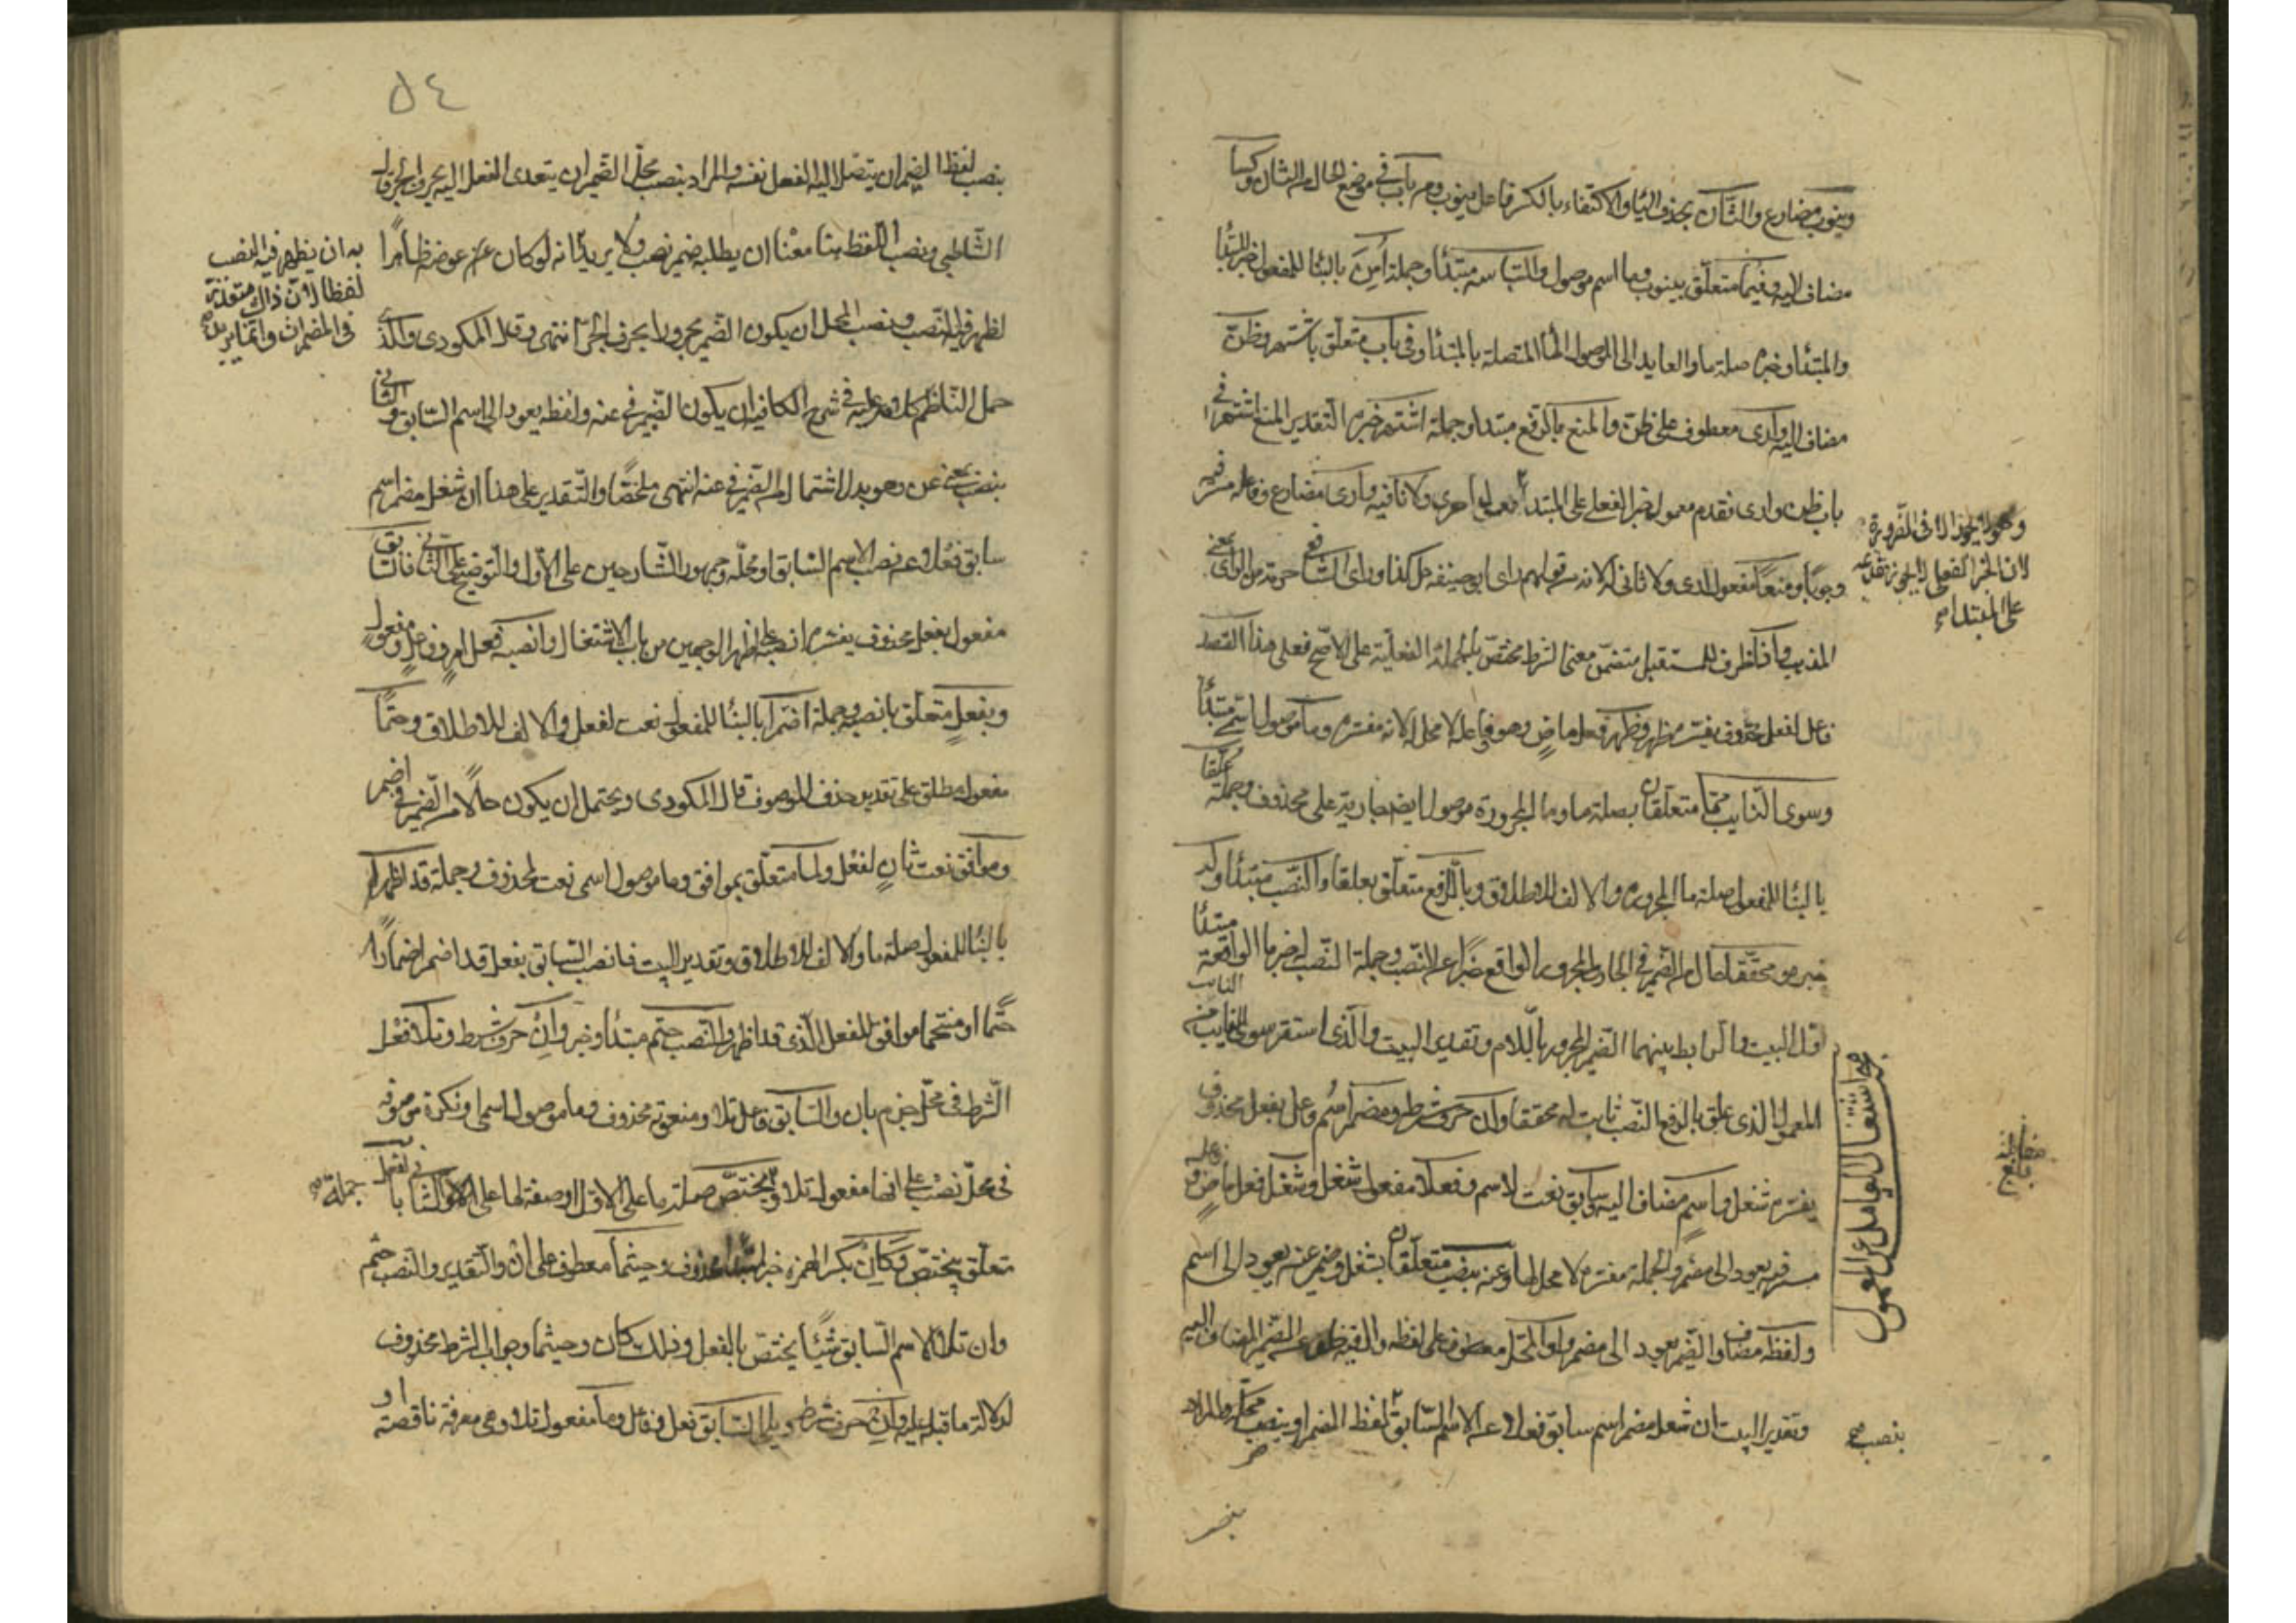 وينوب مضارع والثاني بحذف الياء والاكتفاء بالكسر فاعل ينوب ومن باب في موضع الحال من الثاني وكسا
مضاف اليه وفيما متعلق بينوب وما اسم موصول والتباسه مبتدأ وجملة أمن بالبنا للمفعول خبر المبتدأ
والمبتدأ وخبره صلة ما والعايد الى الموصول الها المتصلة بالمبتدأ وفي باب متعلق باشتهر وظن
مضاف اليه وأرى معطوف على ظن والمنع بالرفع مبتدأ وجملة اشتهر خبره التقدير المنع اشتهر في
باب ظن وارى فقدم معمول الخبر الفعلي على المبتدأ ولا نافيه وأرى مضارع وفاعله مستتر فيه
وهو لا يجوز الا في الضرورة
لان الخبر الفعلي لا يجوز تقديمه
على المبتدا
وجوبا ومنعا مفعول ارى ولا ثاني له لانه من قولهم راى ابو حنيفه حل كذا وراى الشافعي حرمته من الراى بمعنى
المذهب واذا ظرف للمستقبل متضمن معنى الشرط مختص بالجملة الفعلية على الاصح فعلى هذا القصد
فاعل لفعل محذوف يفسره ظهر وظهر فعل ماض وهو وفاعله لا محل له لانه مفسره وما موصول اسمي مبتدأ
وسوى النايب مما متعلقان بصلة ما وما المجرورة موصول ايضا جارية على محذوف وجملة علقا
بالبنا للمفعول صلة ما المجروره والالف للاطلاق وبالرفع متعلق بعلقا والنصب مبتدأ وله
خبره ومحققا حال من الضمير في الجار والمجرور الواقع خبرا عن النصب وجملة النصب له خبر ما الواقعة مبتدأ
اول البيت والرابط بينهما الضمير المجرور باللام وتقدير البيت والذي استقر سوى النايب من
المعمول الذي علق بالرفع النصب ثابت له محققا وان حرف شرط ومضمر اسم فاعل بفعل محذوف
اشتغال العامل عن المعمول
يفسره شغل واسم مضاف اليه وسابق نعت لاسم وفعلا مفعول شغل وشغل فعل ماض وفاعله
مستتر فيه يعود الى مضمر والجملة مفسره لا محل لها وعنه بنصب متعلقان بشغل وضمير عنه يعود الى اسم
ولفظه مضاف والضمير يعود الى مضمر واو المحل معطوف على لفظه والفيه خلف عن الضمير المضاف اليه
وتقدير البيت ان شغل مضمر اسم سابق فعلا عن الاسم السابق لفظ المضمر او بنصب محله والمراد
بنصب صح
بنصب
٥٤
بنصب لفظ الضمير ان يتصل اليه الفعل نفسه والمراد بنصب محل الضمير ان يتعدى الفعل اليه بحرف الجر قال
الشاطبي ونصب اللفظ هنا معنا ان يطلبه ضمير نصب ولا يريد انه لو كان عوضه ظاهرا
به ان يظهر فيه النصب
لفظا لان ذلك متعذر
في المضمرات وانما يريد
لظهر فيه النصب ونصب المحل ان يكون الضمير مجرورا بحرف الجر انتهى وقال المكودي والذي
حمل الناظم كلامه عليه في شرح الكافية ان يكون الضمير في عنه ولفظه يعود الى اسم السابق والباء في
بنصب بمعنى عن وهو بدل اشتمال من الضمير في عنه انتهى ملخصا والتقدير على هذا ان شغل مضمر اسم
سابق فعلا عن نصب الاسم السابق او محله وجمهور الشارحين على الاول والتوضيح على الثاني فالسابق
مفعول بفعل محذوف يفسره انصبه على اظهر الوجهين من باب الاشتغال وانصبه فعل امر وفاعل ومفعول
وبفعل متعلق بانصبه وجملة اضمرا بالبنا للمفعول نعت لفعل والالف للاطلاق وحتما
مفعول مطلق على تقدير حذف الموصوف قال المكودي ويحتمل ان يكون حالا من الضمير في اضمر
وموافق نعت ثان لفعل ولما متعلق بموافق وما موصول اسمي نعت لمحذوف وجملة قد اظهرا
بالبنا للمفعول صلة ما والالف للاطلاق وتقدير البيت فانصب السابق بفعل قد اضمر اضمارا
حتما او منحتما موافق للفعل الذي قد اظهر والنصب حتم مبتدأ وخبر وان حرف شرط وتلا فعل
الشرط في محل جزم بان والسابق فاعل تلا ومنعوته محذوف وما موصول اسمي او نكرة موصوفه
في محل نصب على انها مفعولة تلا ويختص صلة ما على الاول او صفة لها على الثاني بالفعل
جملة صح
متعلق بيختص وكان بكسر الهمزه خبر لمبتدأ محذوف وحيثما معطوف على ان والتقدير والنصب حتم
وان تلا الاسم السابق شيئا يختص بالفعل وذلك كان وحيثما وجواب الشرط محذوف
لدلالة ما قبله عليه وان حرف شرط وتلا السابق فعل وفاعل وما مفعول تلا وهي معرفة ناقصة او